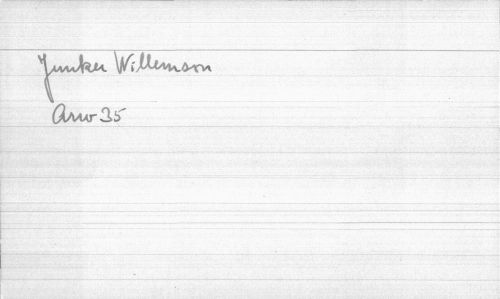 Junker Willemson
Arw 35